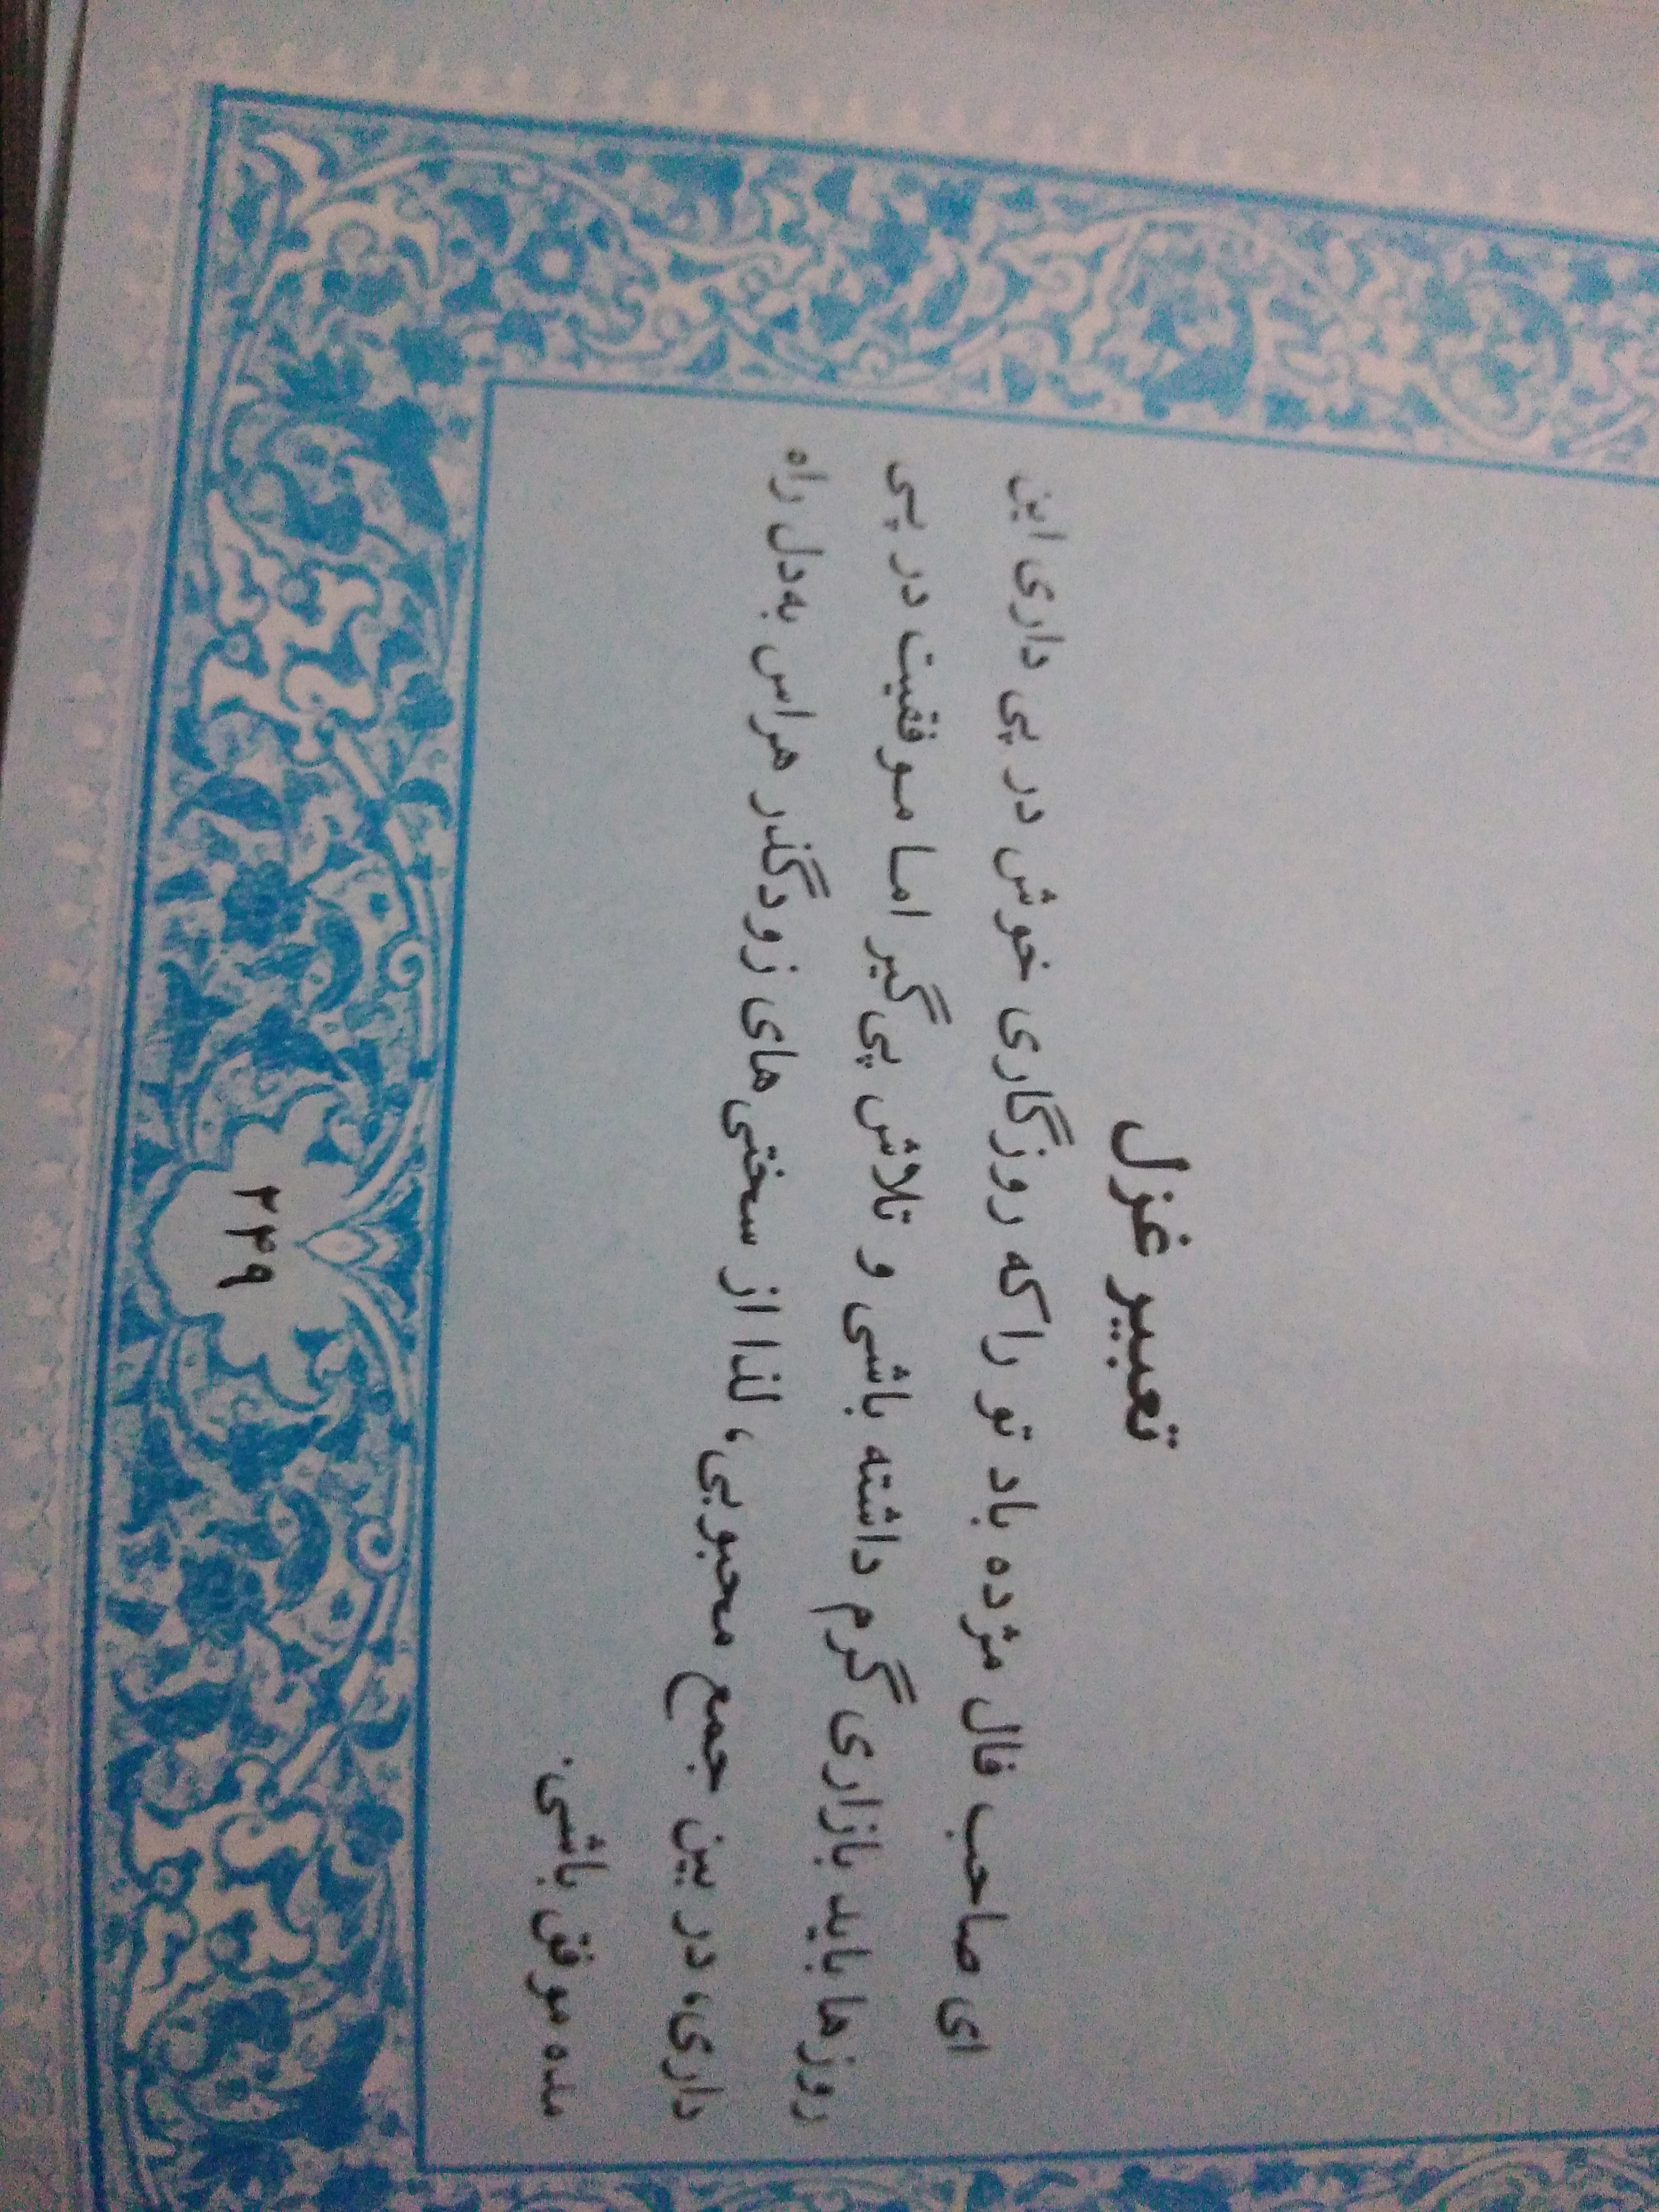 تعبیر غزل
ای صاحب فال مژده باد تو را که روزگاری خوش در پی داری این
روزها باید بازاری گرم داشته باشی و تلاش پی‌گیر اما موفقیت در پی
داری، در بین جمع محبوبی، لذا از سختی‌های زودگذر هراس به دل راه
مده موفق باشی.
۲۴۹